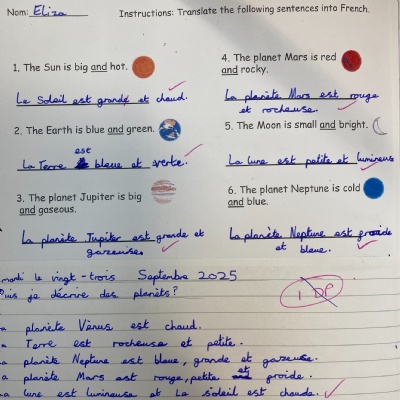 Nom: Eliza
Instructions: Translate the following sentences into French.
1. The Sun is big and hot.
Le Soleil est grande et chaud.
2. The Earth is blue and green.
est
La Terre bleue et verte.
3. The planet Jupiter is big
and gaseous.
La planète Jupiter est grande et
gazeuse.
4. The planet Mars is red
and rocky.
La planète Mars est rouge
et rocheuse.
5. The Moon is small and bright.
La lune est petite et lumineus
6. The planet Neptune is cold
and blue.
La planète Neptune est groide
et bleue.
mardi le vingt-trois Septembre 2025
Puis je décrire des planèts?
1 DP
a planète Vènus est chaud.
a Terre est rocheuse et petite.
a planète Neptune est bleue, grande et gazeuse.
et
a planète Mars est rouge, petite groide.
a lune est lumineuse et La Soleil est chaude.